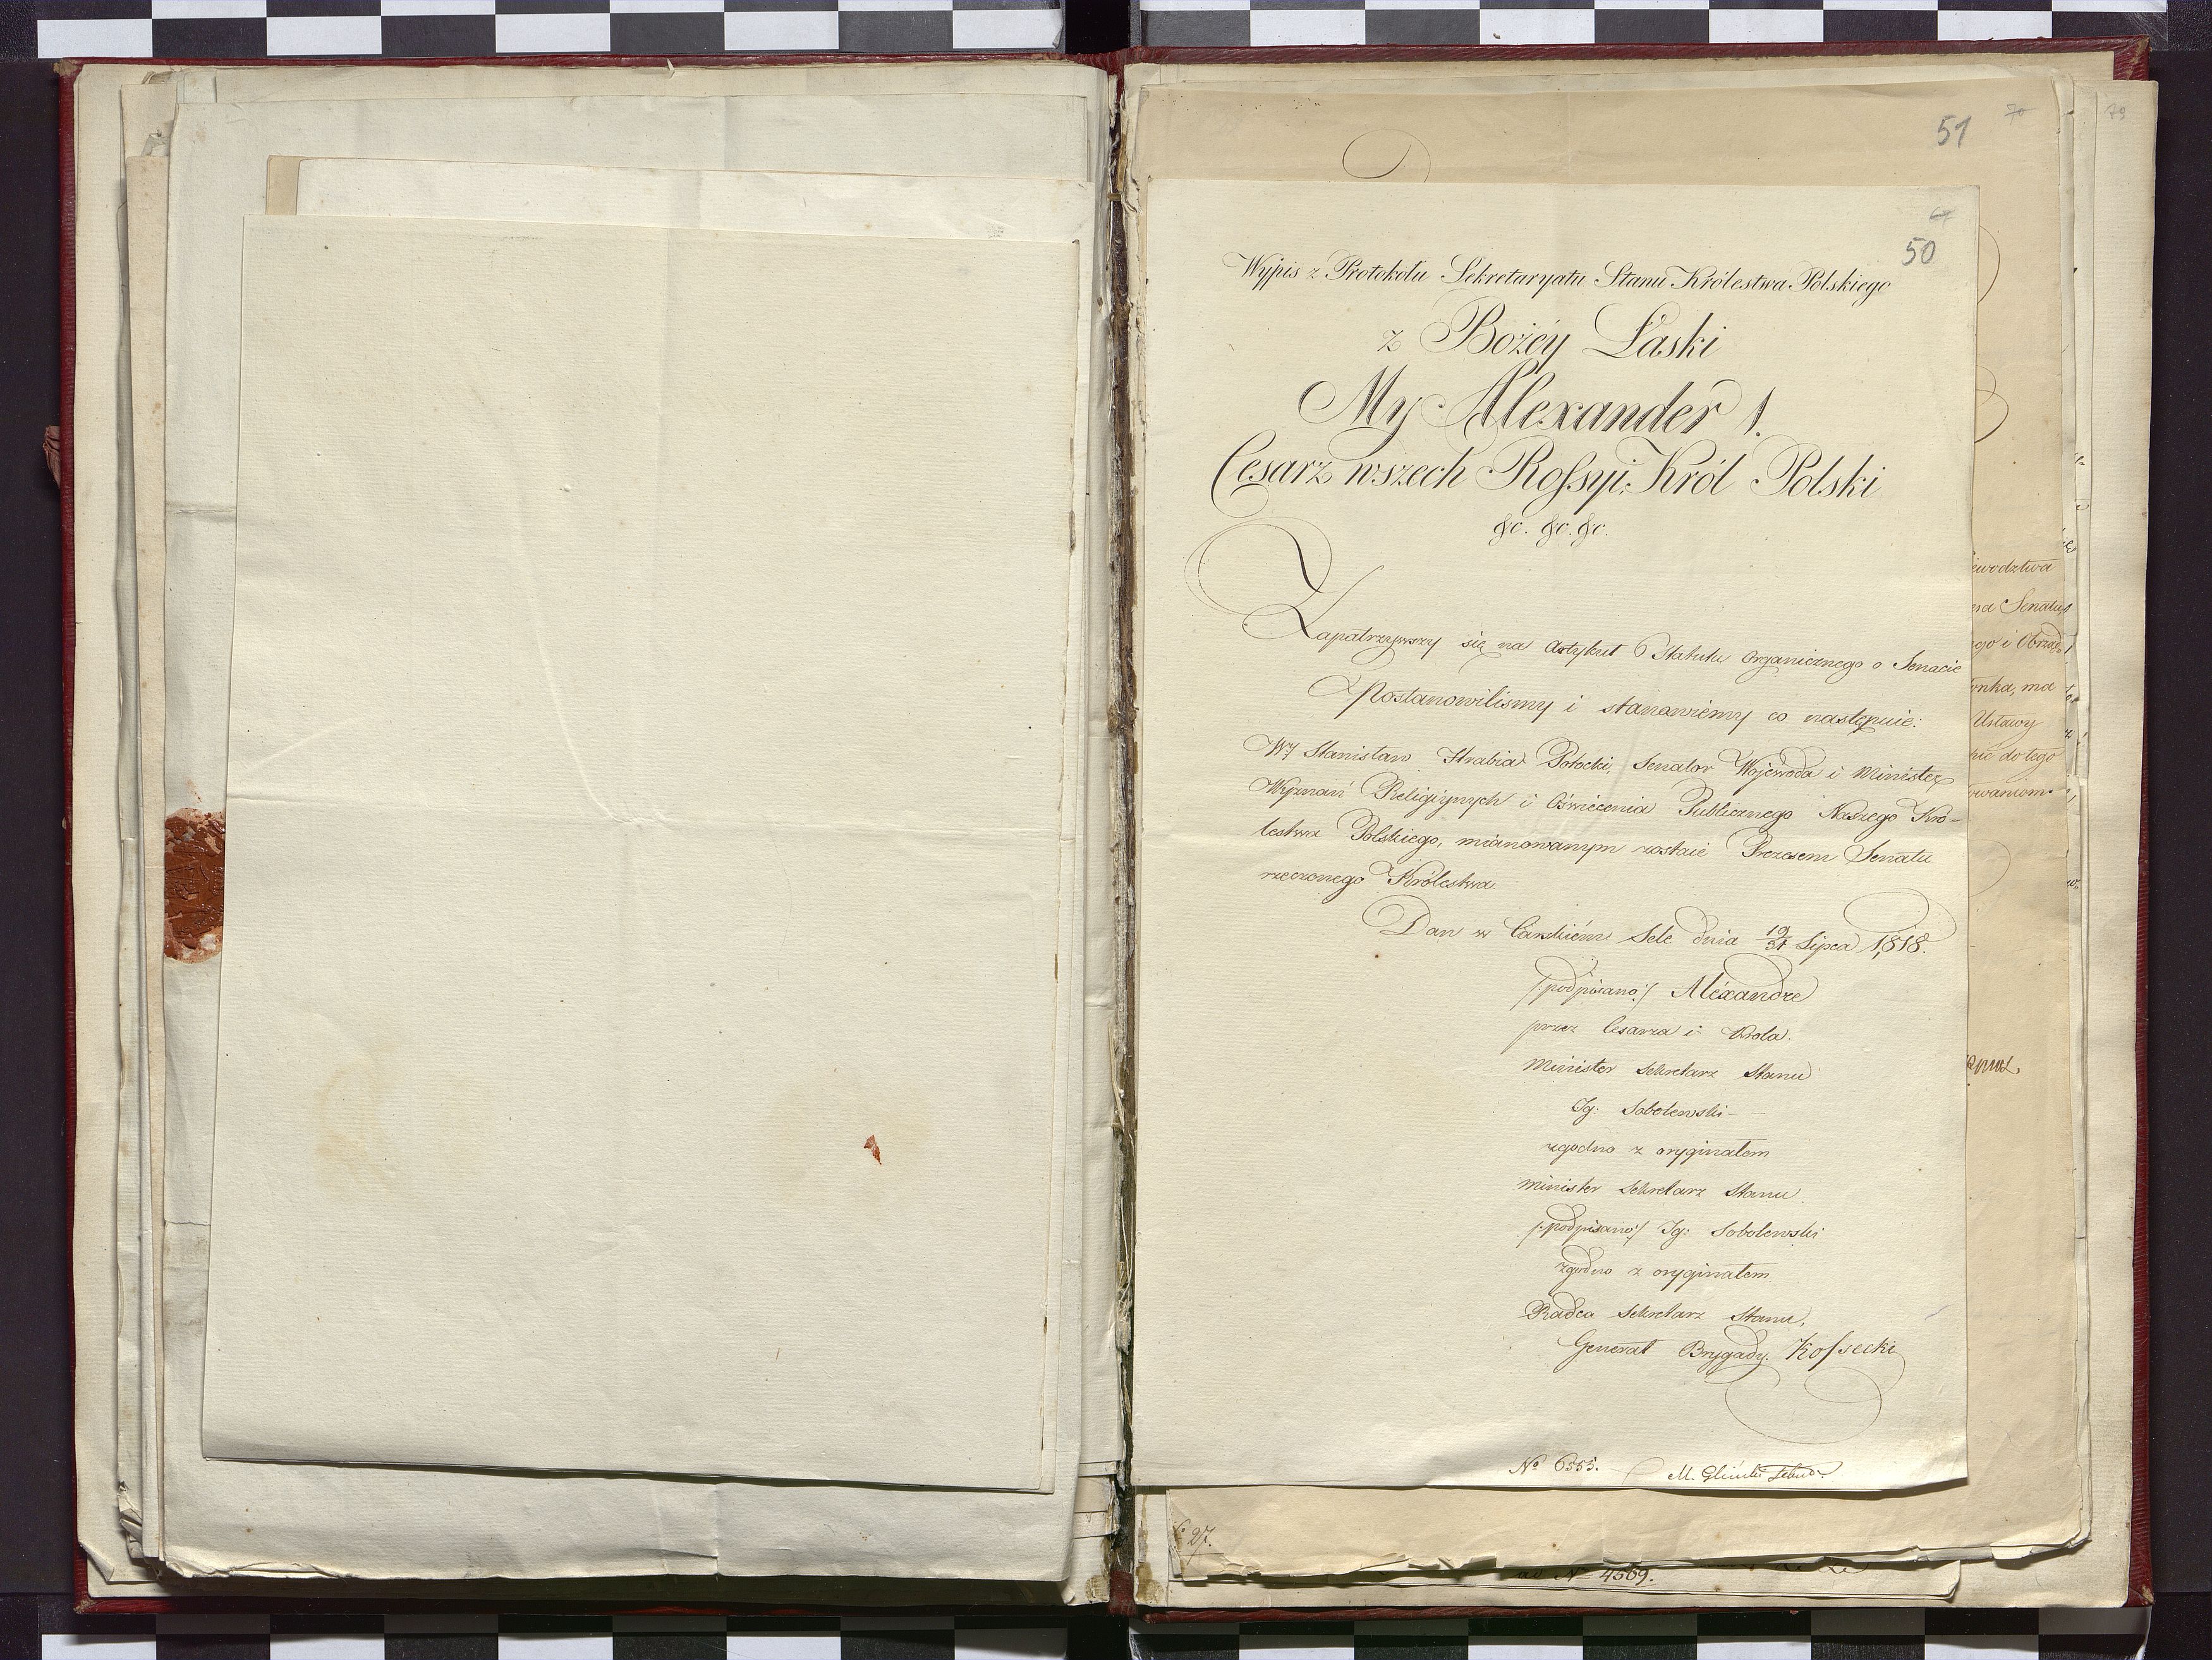 51
70
79
67
50
Wypis z Protokołu Sekretaryatu Stanu Królestwa Polskiego
z Bożéy Łaski
My Alexander I.
Cesarz wszech Rossyi, Król Polski
&c. &c. &c.
Zapatrzywszy się na Artykuł 6 Statutu Organicznego o Senacie
Postanowilismy i stanowiemy co następuie:
Wy Stanisław Hrabia Potocki, Senator Wojewoda i Minister
Wyznań Religiynych i Oświecenia Publicznego Naszego Kró-
lestwa Polskiego, mianowanym zostaie Prezesem Senatu
rzeczonego Królestwa.
Dan w Carskiém Sele dnia 19/31 Lipca 1818.
/:podpisano:/ Alexandre
przez Cesarza i Króla.
Minister Sekretarz Stanu
Ig: Sobolewski
zgodno z oryginałem
Minister Sekretarz Stanu.
/:podpisano:/ Ig: Sobolewski
zgodno z oryginałem
Radca Sekretarz Stanu,
Generał Brygady. Kossecki
No 6555.
M. Gliński
ewodztwa
Senatu
ego i Obrząd
onka, ma
Ustawy
pie do tego
owaniom
27.
ad No 4569.